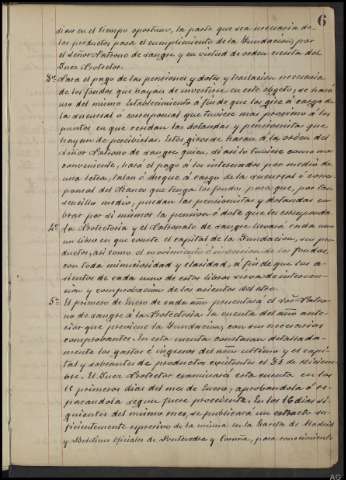 6
dran en el tiempo oportuno, la parte que sea necesaria de
los productos para el cumplimiento de la Fundación, por
el señor Patrono de sangre y en virtud de orden escrita del
Juez Protector.
3ª Para el pago de las pensiones y dotes y traslación necesaria
de los fondos que hayan de invertirse en este objeto, se hará
uso del mismo Establecimiento a fin de que los gire a cargo de
la sucursal o corresponsal que tuviese mas proximo a los
puntos en que residan las dotandas y pensionistas que
hayan de percibirlas. Estos giros se harán a la orden del
señor Patrono de sangre quien, si así lo tuviese como mas
conveniente, hará el pago a los interesados por medio de
una letra, talon o cheque a cargo de la sucursal o corres-
ponsal del Banco que tenga los fondos para que, por tan
sencillo medio, puedan las pensionistas y dotandas co-
brar por si mismos la pension o dote que les corresponda.
4ª La Protectoria y el Patronato de sangre llevará cada uno
un libro en que conste el capital de la Fundación, sus pro-
ductos, así como el movimiento e inversion de los fondos,
con toda minuciosidad y claridad, a fin de que los a-
sientos de cada uno de estos libros sirva de interven-
ción y comprobación de los asientos del otro.
5ª El primero de Enero de cada año presentará el señor Patro-
no de sangre á la Protectoria la cuenta del año ante-
rior que previene la Fundación, con sus necesarios
comprobantes. En esta cuenta constarán detallada-
mente los gastos é ingresos del año ultimo y el capi-
tal y sobrante de productos existente el 31 de diciem-
bre. El Juez Protector examinará esta cuenta en los
15 primeros dias del mes de Enero, aprobandola ó re-
parandola segun fuere procedente. En los 16 dias si-
guientes del mismo mes, se publicará un extracto su-
ficientemente expresivo de la misma en la Gaceta de Madrid
y Boletines oficiales de Pontevedra y Coruña, para conocimiento
AG